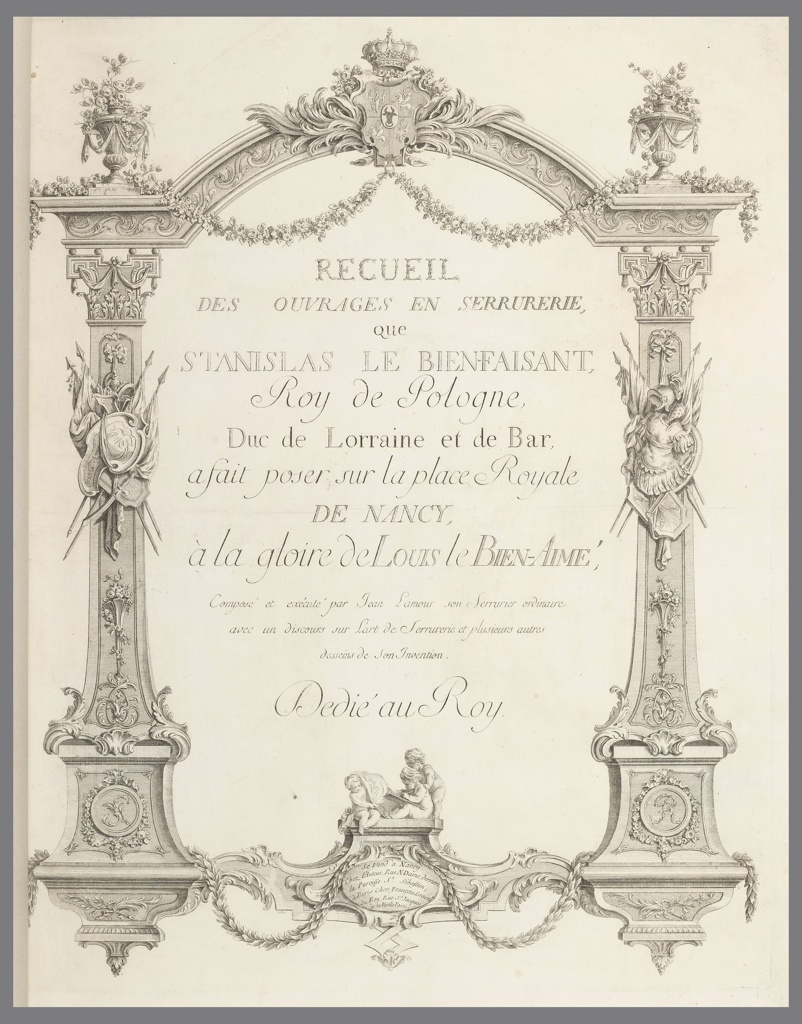 RECUEIL
DES OUVRAGES EN SERRURERIE,
que
STANISLAS LE BIENFAISANT,
Roy de Pologne,
Duc de Lorraine et de Bar,
a fait poser sur la place Royale
DE NANCY,
à la gloire de LOUIS le BIEN-AIMÉ,
Composé et exécuté par Jean Lamour son Serrurier ordinaire
avec un discours sur l'art de Serrurerie et plusieurs autres
desseins de Son Invention.
Dedié au Roy.
Se Vend a Nancy
chez l'Auteur, Rue N. Dame
la Paroisse St. Sebastien,
a Paris Chez François
Roy, Rue St. Jacques